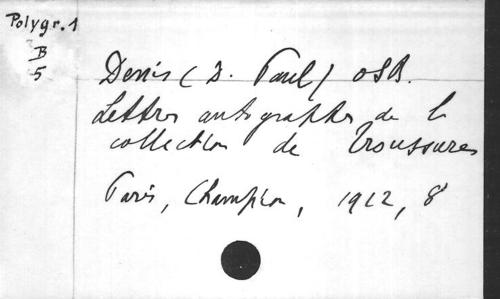 Polygr. 1
B
5
Denis (D. Paul) OSB.
Lettres autographes de la
collection de Troussures
Paris, Champion, 1912, 8°